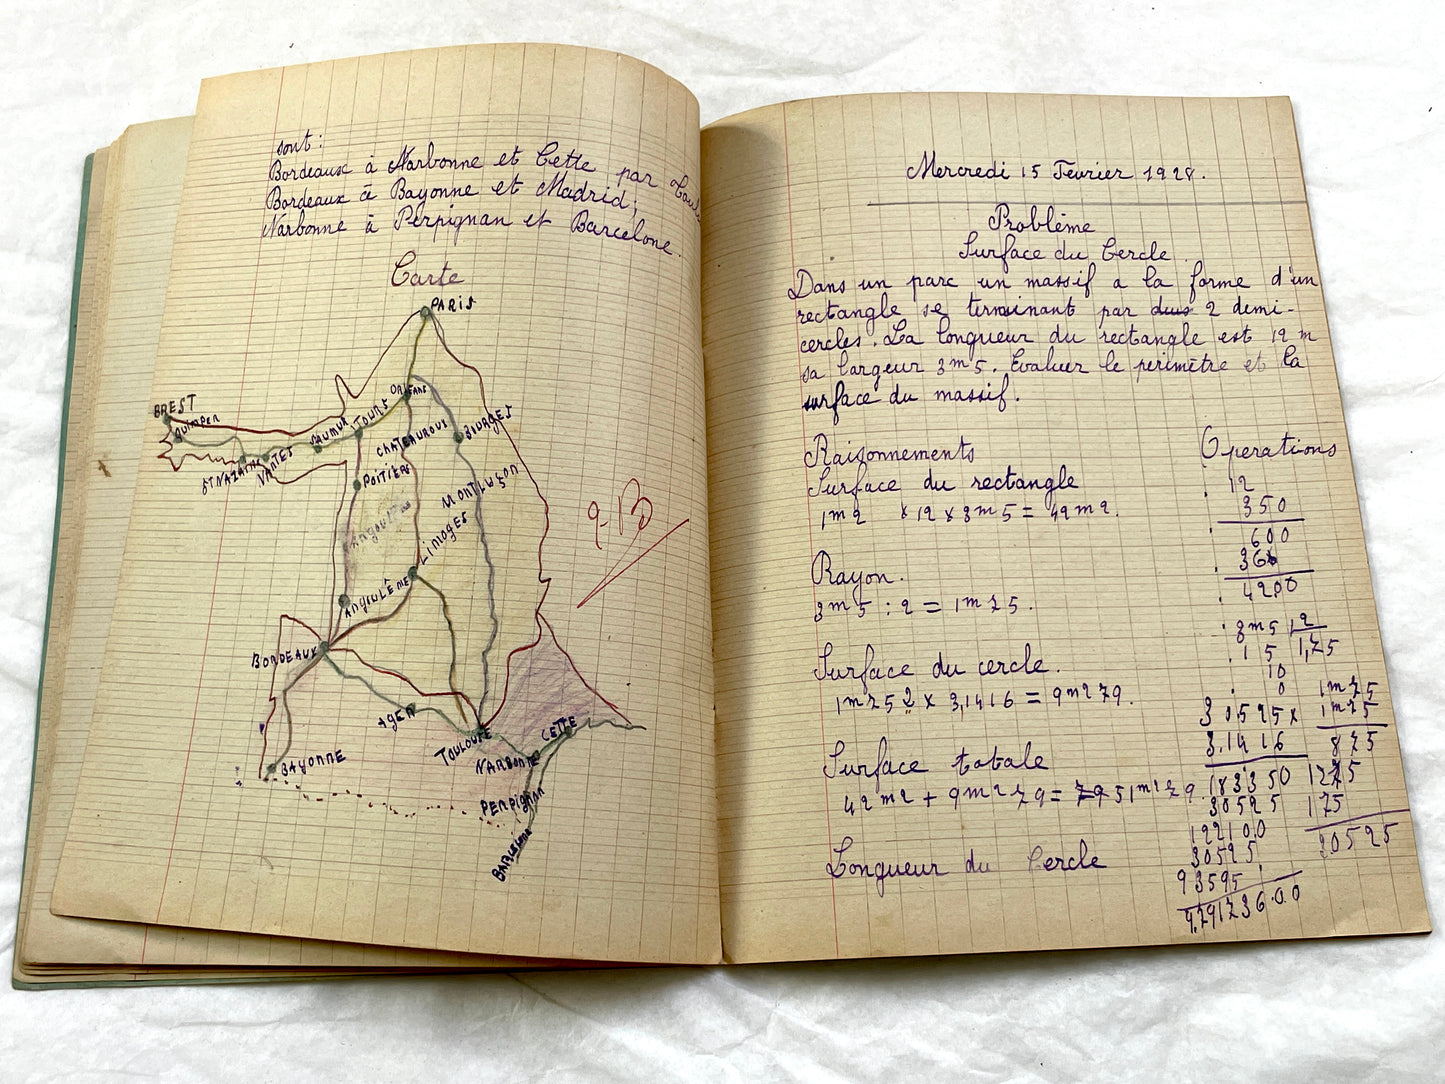 sont :
Bordeaux à Narbonne et Cette par
Bordeaux à Bayonne et Madrid;
Narbonne à Perpignan et Barcelone.
Carte
PARIS
ORLÉANS
BREST
QUIMPER
TOURS
SAUMUR
BOURGES
CHATEAUROUX
ST NAZAIRE
NANTES
POITIERS
MONTLUÇON
Angoulême
LIMOGES
ANGOULÊME
BORDEAUX
AGEN
TOULOUSE
CETTE
NARBONNE
BAYONNE
PERPIGNAN
BARCELONE
Mercredi 15 Février 1928.
Problème
Surface du Cercle.
Dans un parc un massif a la forme d'un
rectangle se terminant par deux 2 demi-
cercles. La longueur du rectangle est 12 m
sa largeur 3m5. Evaluer le périmètre et la
surface du massif.
Raisonnements
Surface du rectangle
1m2 × 12 × 3m5 = 42m2.
Rayon.
3m5 : 2 = 1m75.
Surface du cercle.
1m75 2 × 3,1416 = 9m279.
Surface totale
42m2 + 9m279 = 51m279
Longueur du Cercle
Operations
12
350
600
36
4200
3m5 12
15 1,75
10
0
1m75
1m75
875
1225
175
30525
30525 ×
3.1416
183350
30525
122100
30525
93595